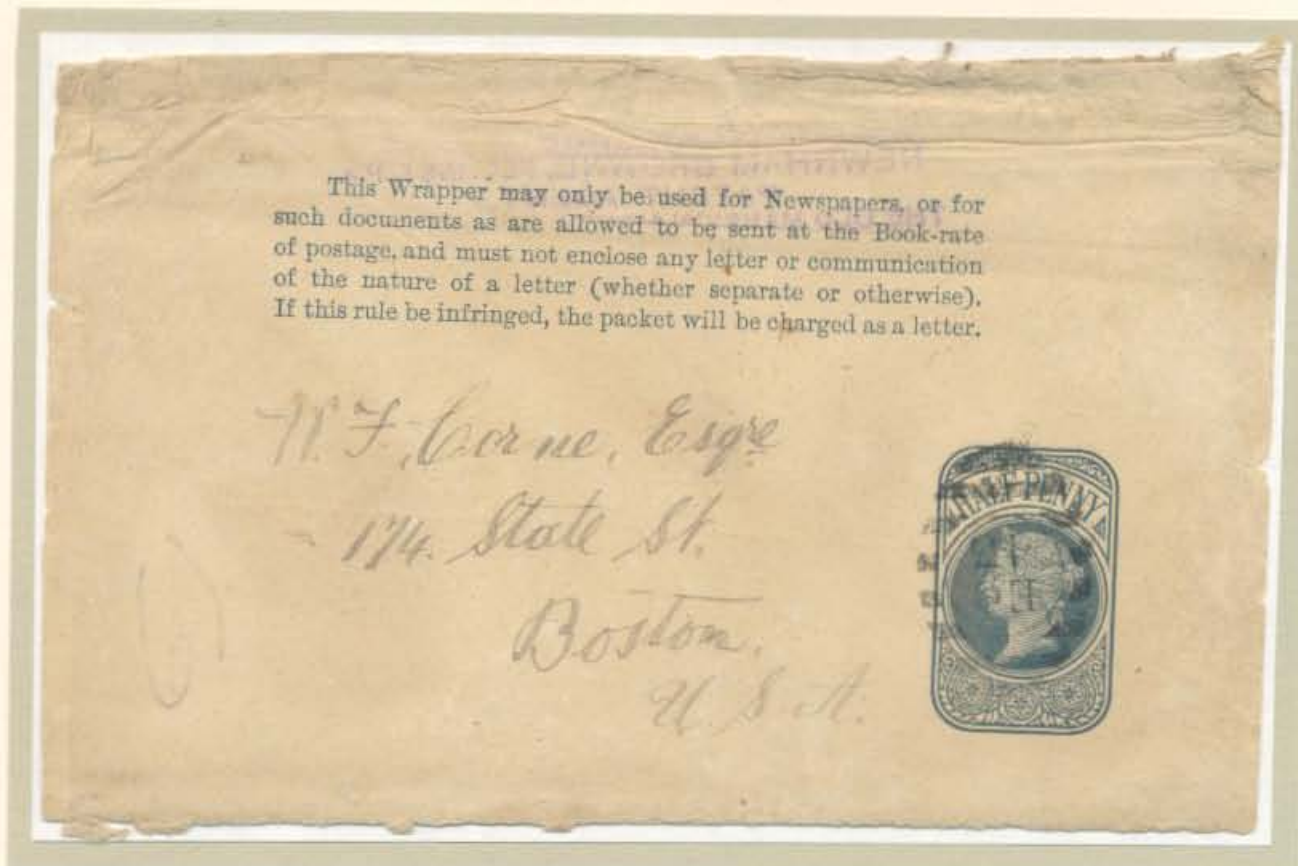 This Wrapper may only be used for Newspapers, or for
such documents as are allowed to be sent at the Book-rate
of postage, and must not enclose any letter or communication
of the nature of a letter (whether separate or otherwise).
If this rule be infringed, the packet will be charged as a letter.
W. F. Corne, Esqre
174. State St.
Boston.
U. S. A.
HALFPENNY